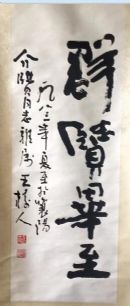 群贤毕至
一九八三年夏至于襄阳
介眉同志雅属
王树人